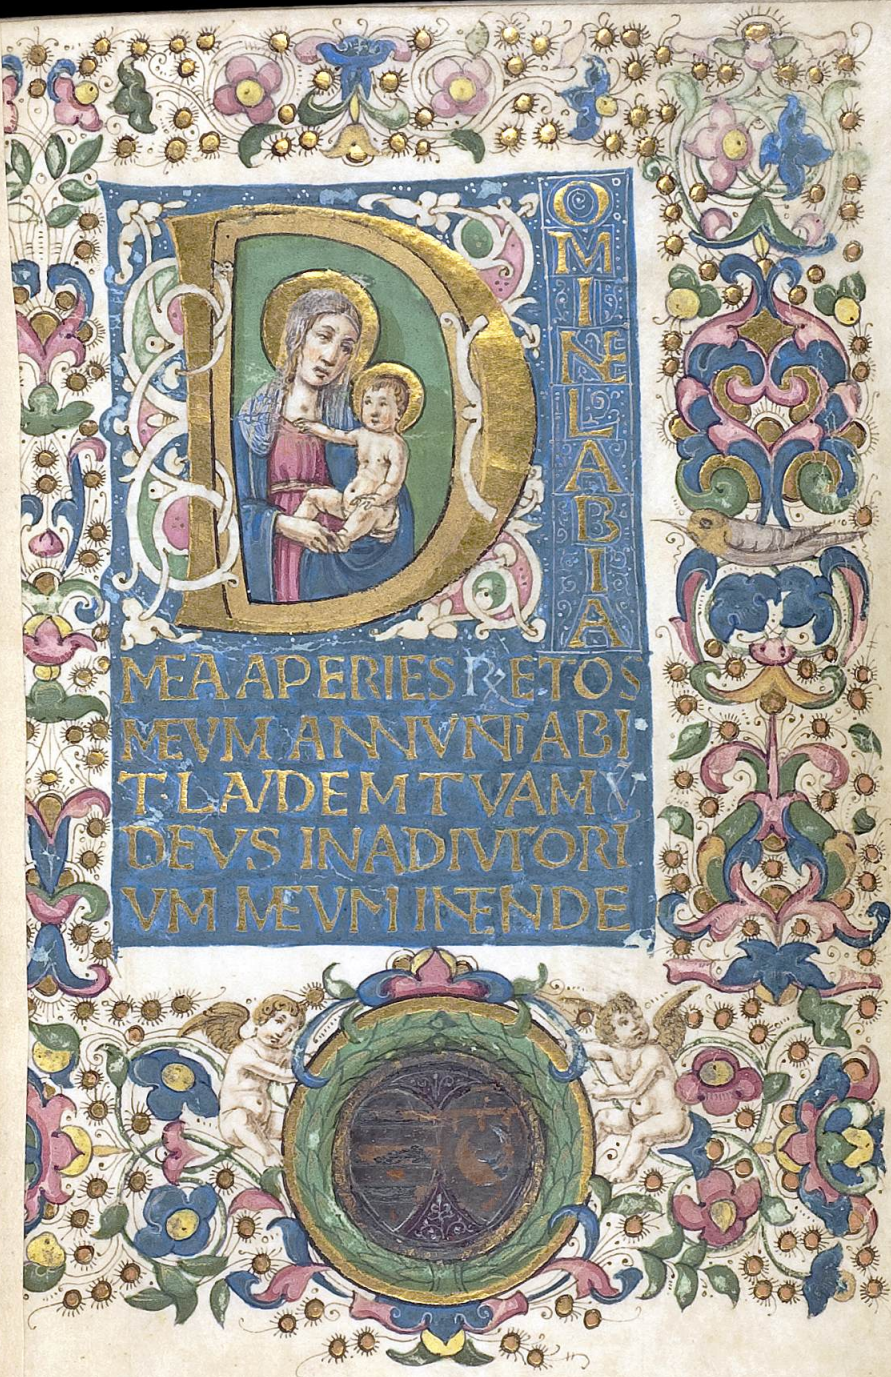 DOMINE LABIA
MEA APERIES ℞ ET OS
MEVM ANNVNTIABI
T·LAVDEM TVAM ℣
DEVS IN ADIVTORI
VM MEVM INENDE